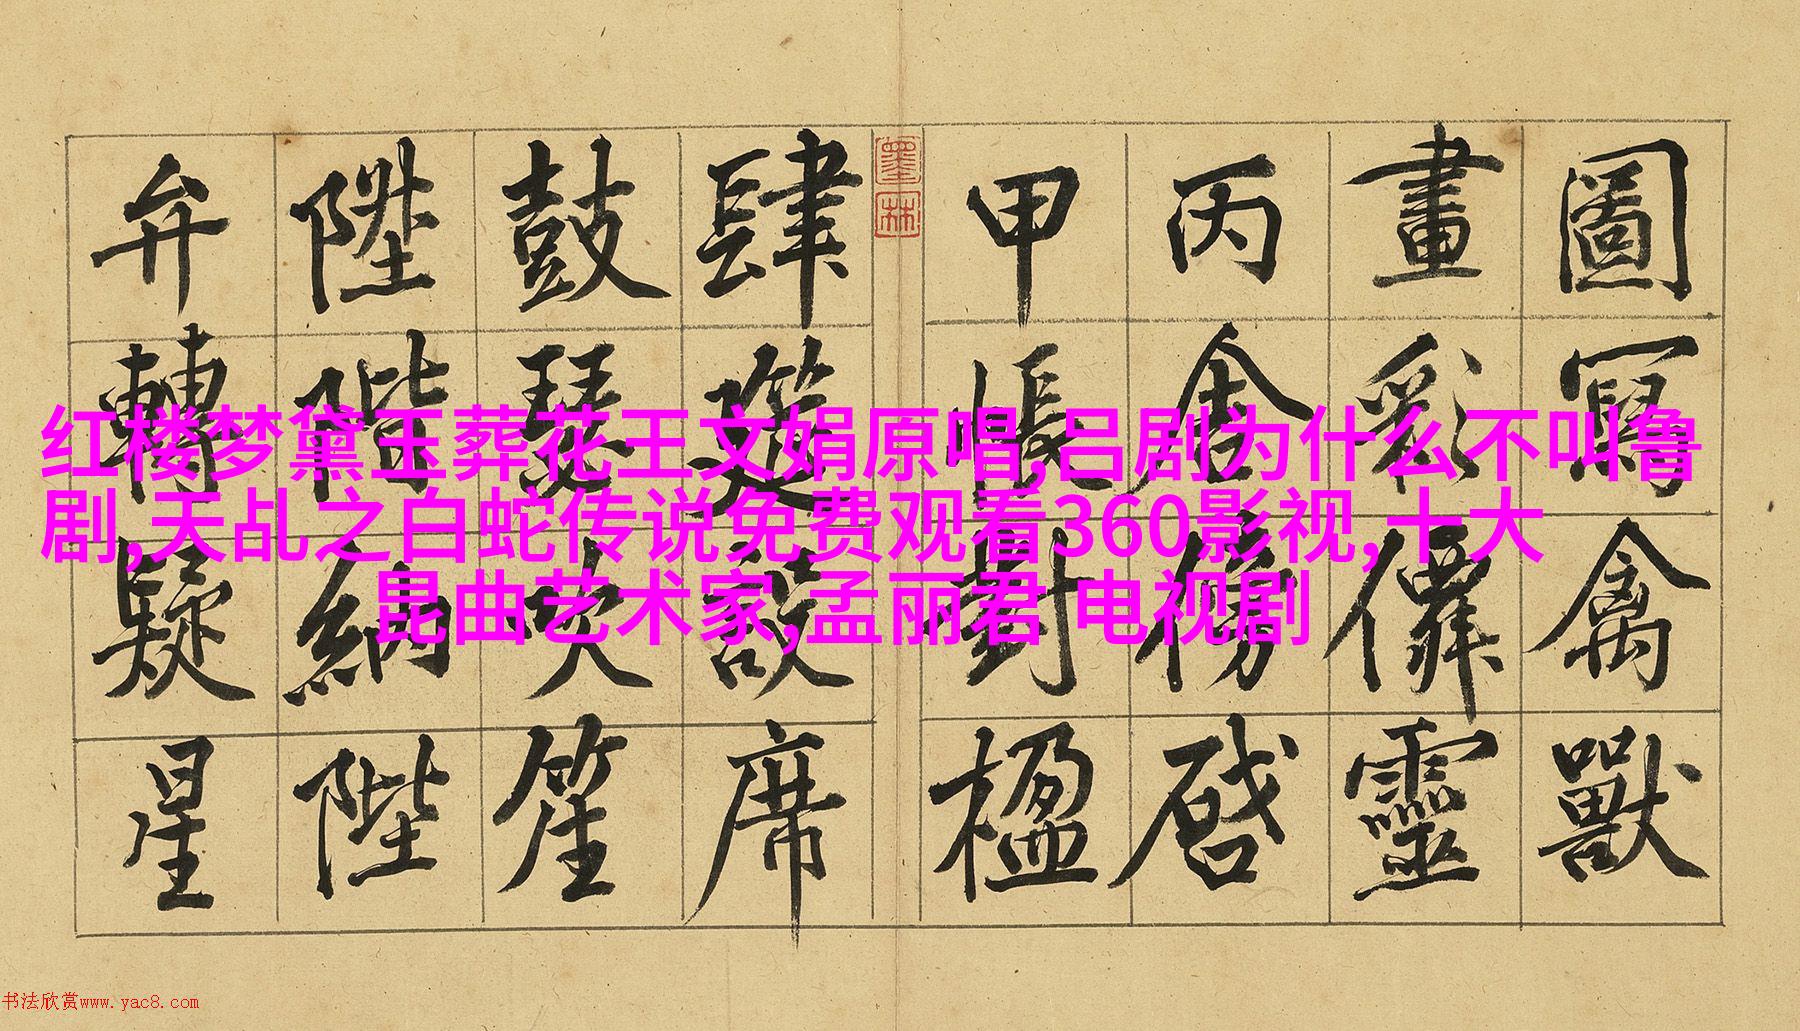 圖寫禽獸
畫彩僊靈
丙舍傍啓
甲帳對楹
墨林
肆筵設席
鼓瑟吹笙
陞階納陛
弁轉疑星
红楼梦黛玉葬花王文娟原唱,吕剧为什么不叫鲁
剧,天乩之白蛇传说免费观看360影视,十大
昆曲艺术家,孟丽君 电视剧
书法欣赏www.yac8.com